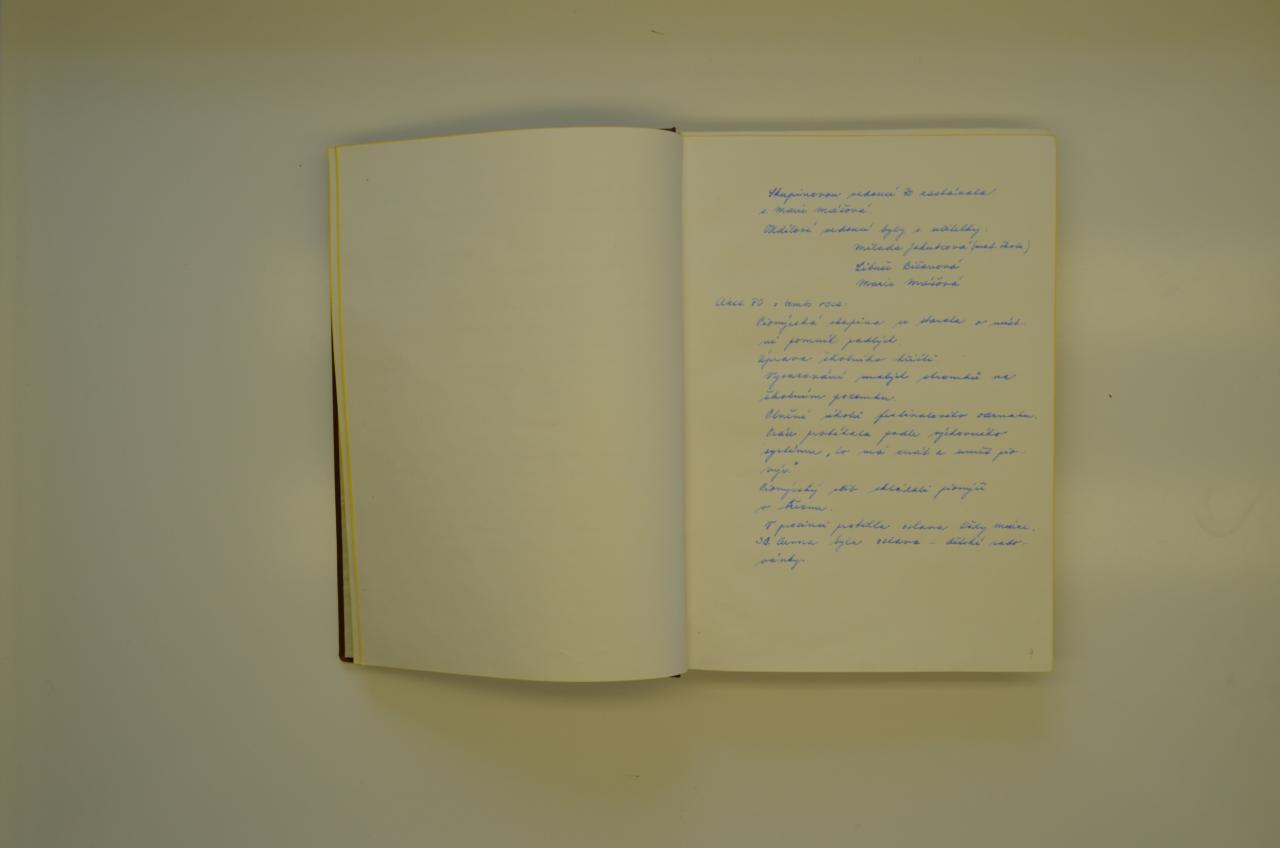 Skupinovou vedoucí PO zastávala
s. Marie Mášová
Oddílové vedoucí byly s. učitelky:
Milada Jakubcová (mat. škola)
Libuše Bičanová
Marie Mášová
Akce PO v tomto roce:
Pionýrská skupina se starala o míst-
ní pomník padlých
Úprava školního hřiště
Vysazování malých stromků na
školním pozemku.
Plnění úkolů festivalového odznaku.
Práce probíhala podle výchovného
systému „Co má znát a umět pio-
nýr."
Pionýrský slib skládali pionýři
v březnu.
V prosinci proběhla oslava Dědy mráze.
30. června byla oslava – dětské rado-
vánky.